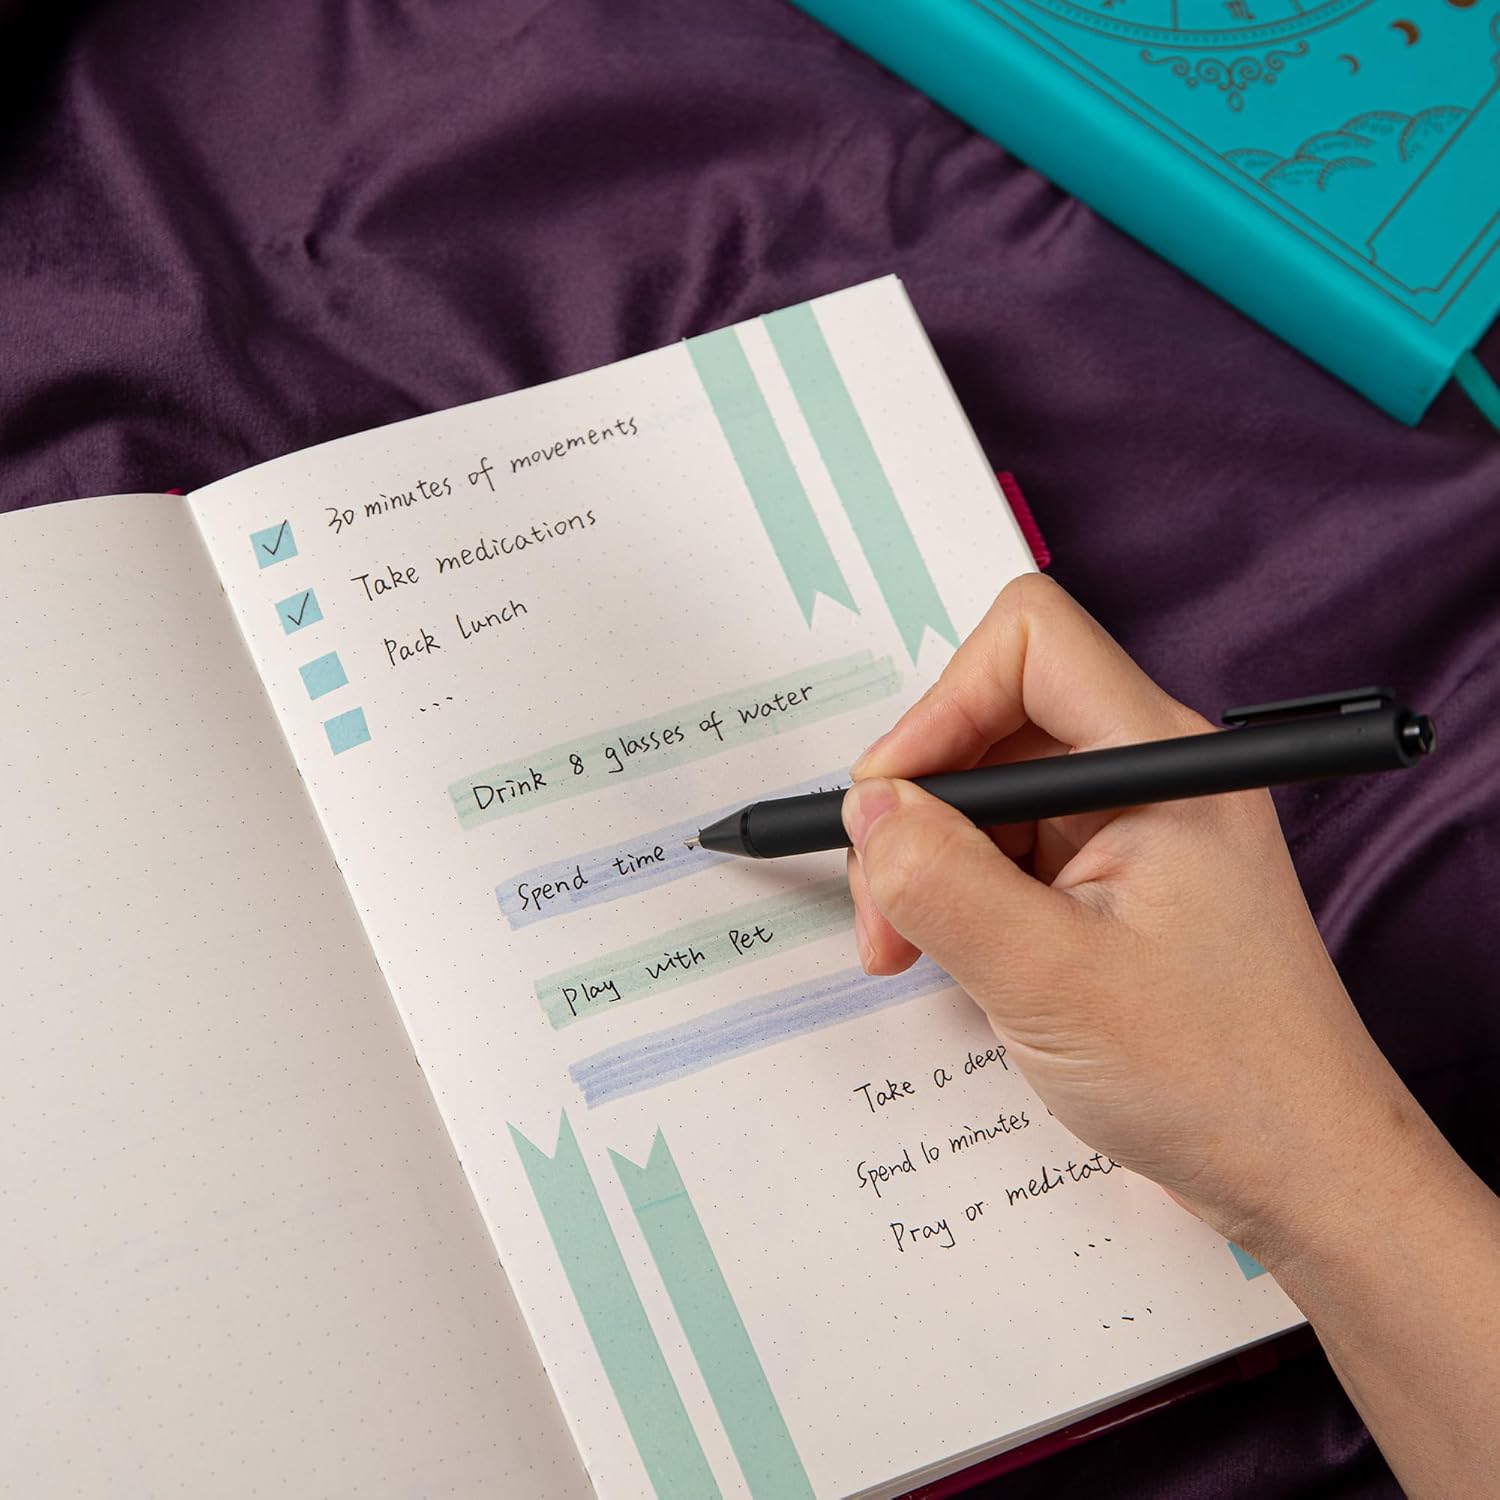 30 minutes of movements
Take medications
Pack lunch
...
Drink 8 glasses of water
Spend time
Play with Pet
Take a deep
Spend 10 minutes
Pray or meditate
...
...